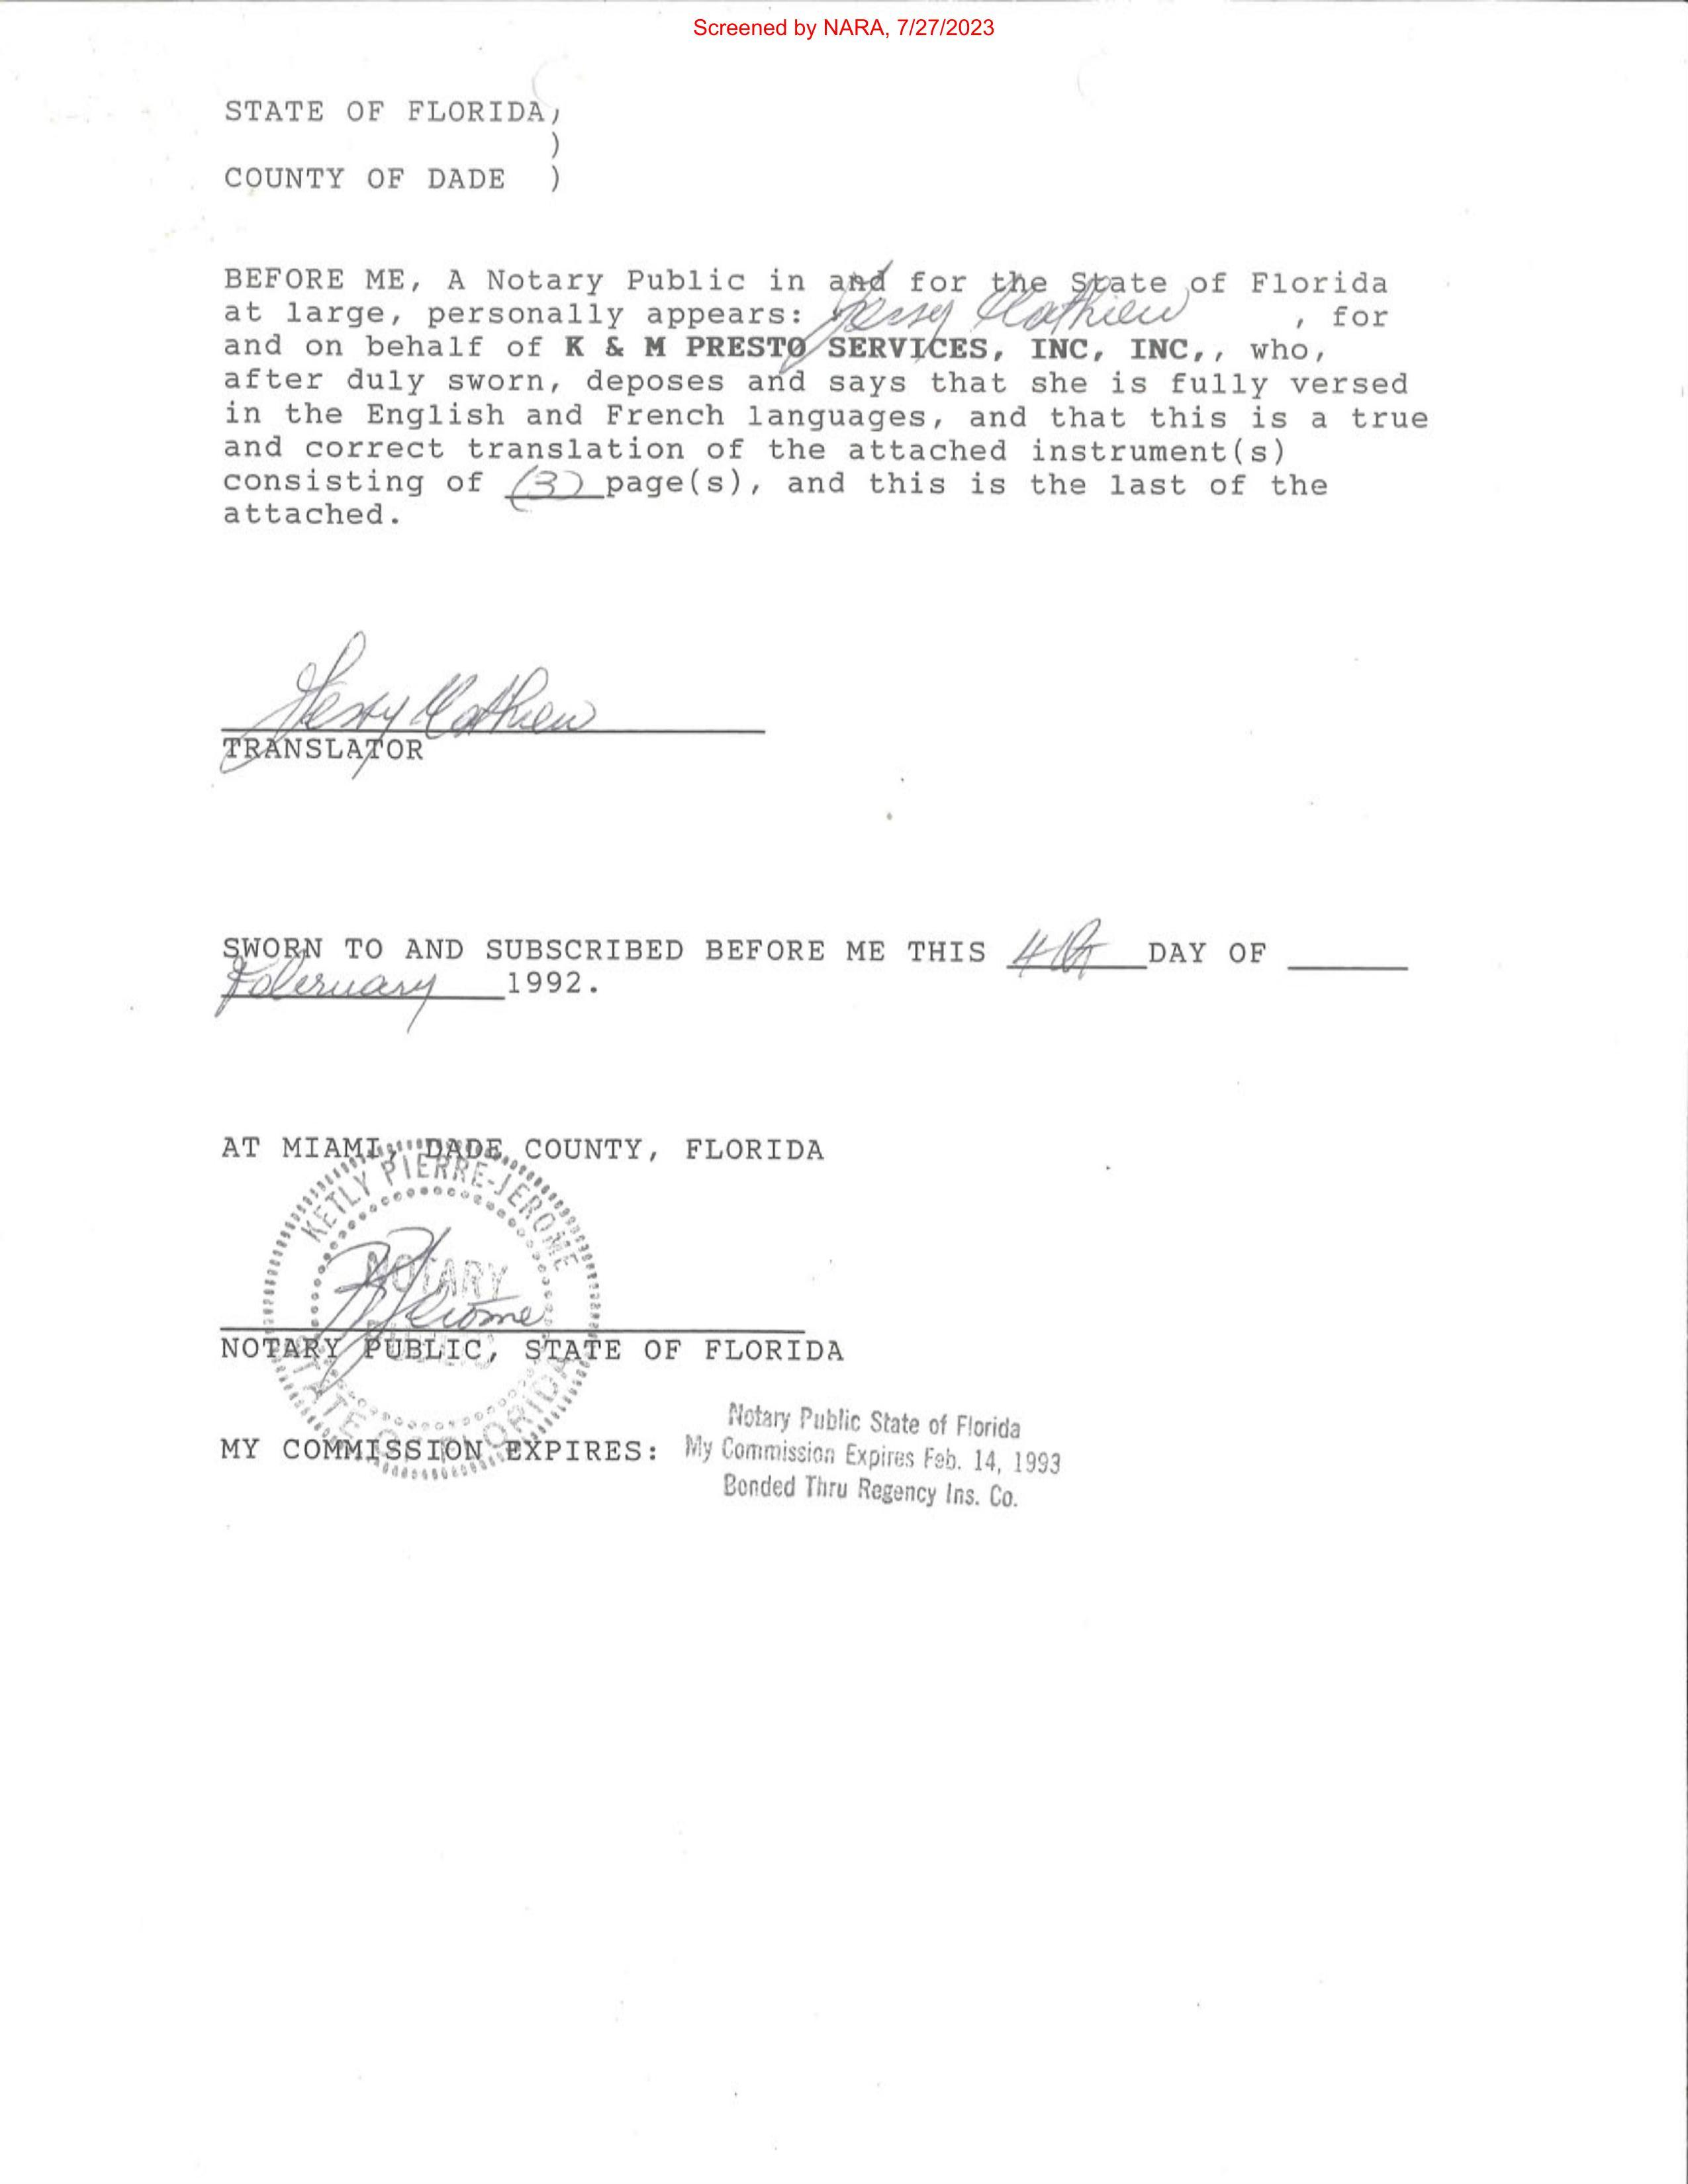 Screened by NARA, 7/27/2023
STATE OF FLORIDA)
)
COUNTY OF DADE )
BEFORE ME, A Notary Public in and for the State of Florida
at large, personally appears: Mathieu , for
and on behalf of K & M PRESTO SERVICES, INC, INC,, who,
after duly sworn, deposes and says that she is fully versed
in the English and French languages, and that this is a true
and correct translation of the attached instrument(s)
consisting of (3) page(s), and this is the last of the
attached.
Mathieu
TRANSLATOR
SWORN TO AND SUBSCRIBED BEFORE ME THIS 4th DAY OF
February 1992.
AT MIAMI, DADE COUNTY, FLORIDA
KETLY PIERRE-JEROME
NOTARY
PUBLIC
STATE OF FLORIDA
Jerome
NOTARY PUBLIC, STATE OF FLORIDA
MY COMMISSION EXPIRES:
Notary Public State of Florida
My Commission Expires Feb. 14, 1993
Bonded Thru Regency Ins. Co.